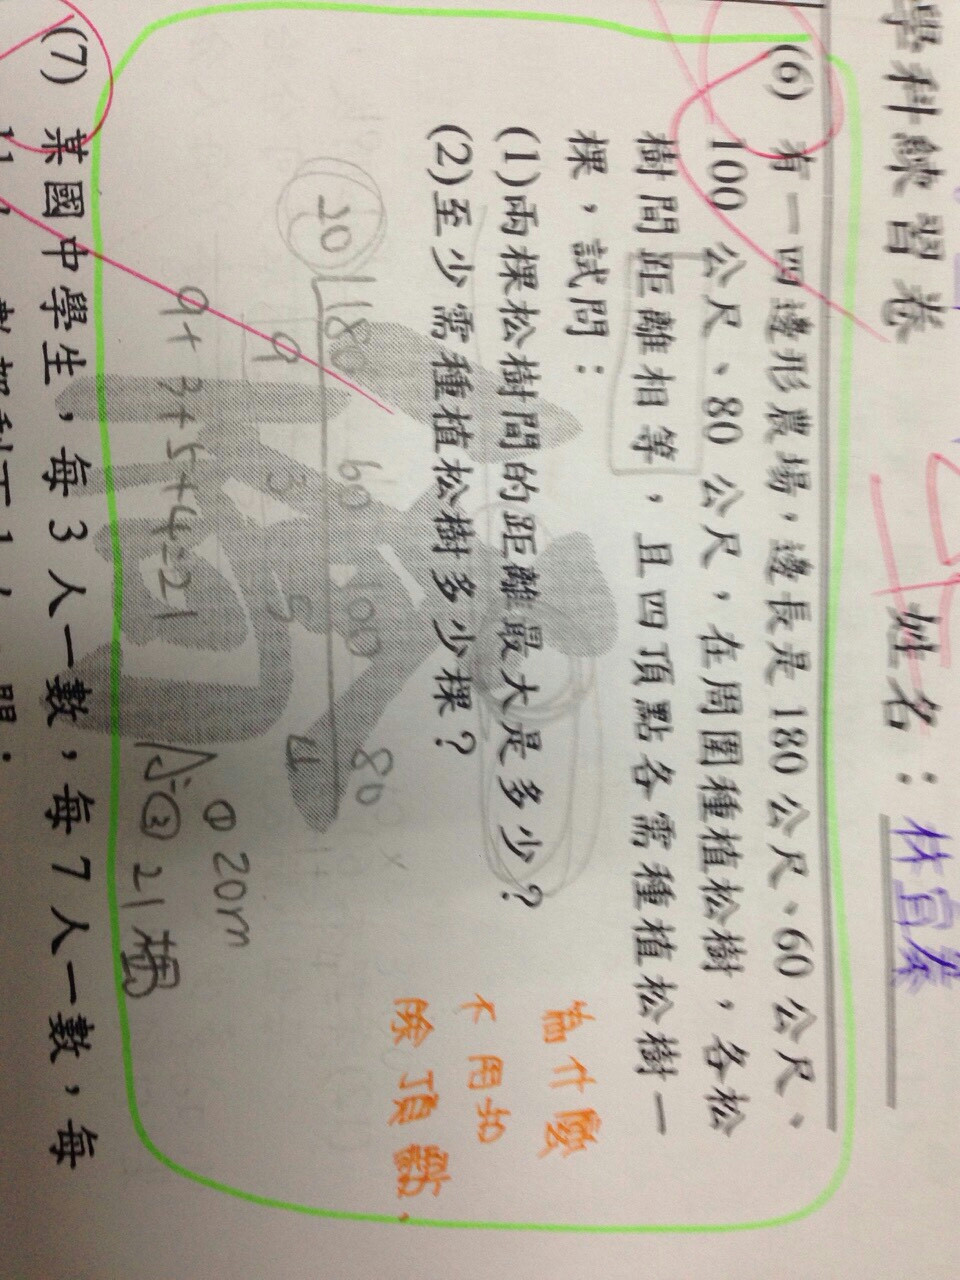 學科練習卷 姓名：林宜蓁
(6) 有一四邊形農場，邊長是 180 公尺、60 公尺、
100 公尺、80 公尺，在周圍種植松樹，各松
樹間距離相等，且四頂點各需種植松樹一
棵，試問：
(1)兩棵松樹間的距離最大是多少？
(2)至少需種植松樹多少棵？
20 180 60 100 80
9 3 5 4
9+3+5+4=21
① 20m
A: ② 21棵
為什麼
不用扣
除頂點.
(7) 某國中學生，每 3 人一數，每 7 人一數，每